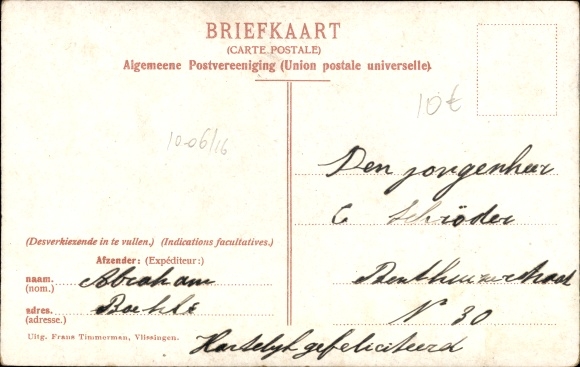 BRIEFKAART
(CARTE POSTALE)
Algemeene Postvereeniging (Union postale universelle)
10€
10-06/16
Den jongenheer
C Schröder
N 30
(Desverkiezende in te vullen.) (Indications facultatives.)
Afzender: (Expéditeur:)
naam. Abraham
(nom.)
adres.
(adresse.)
Uitg. Frans Timmerman, Vlissingen.
Hartelijk gefeliciteerd